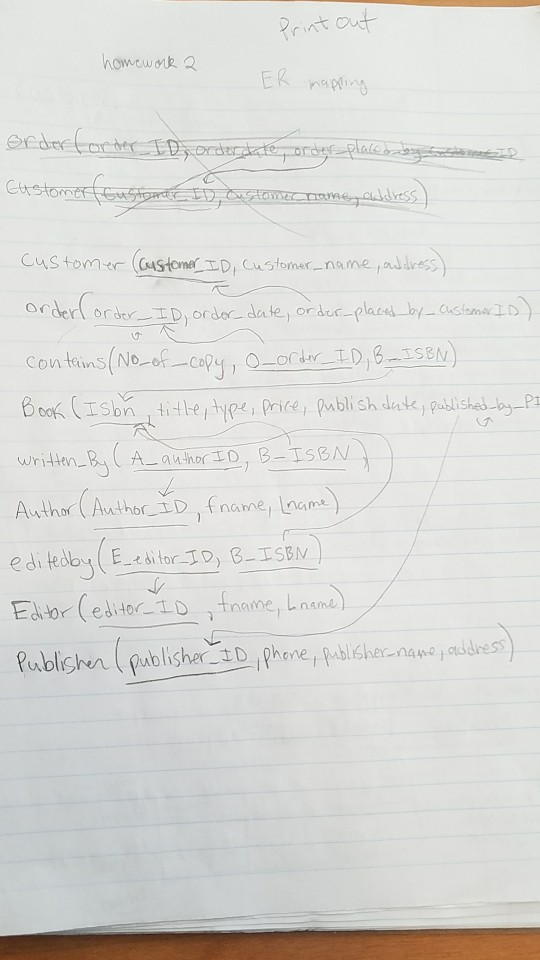 Print out
homework 2
ER mapping
order(order_ID, orderdate, order_placed_by_customer ID
Customer(Customer_ID, Customer_name, address)
Customer (Customer_ID, Customer_name, address)
order(order_ID, order_date, order_placed_by_customerID)
contains(No_of_copy, O_order_ID, B_ISBN)
Book (Isbn, title, type, price, publish date, published_by_PI
written_By (A_authorID, B_ISBN)
Author (Author_ID, fname, Lname)
editedby (E_editor_ID, B_ISBN)
Editor (editor_ID, fname, Lname)
Publisher (publisher_ID, phone, publisher_name, address)